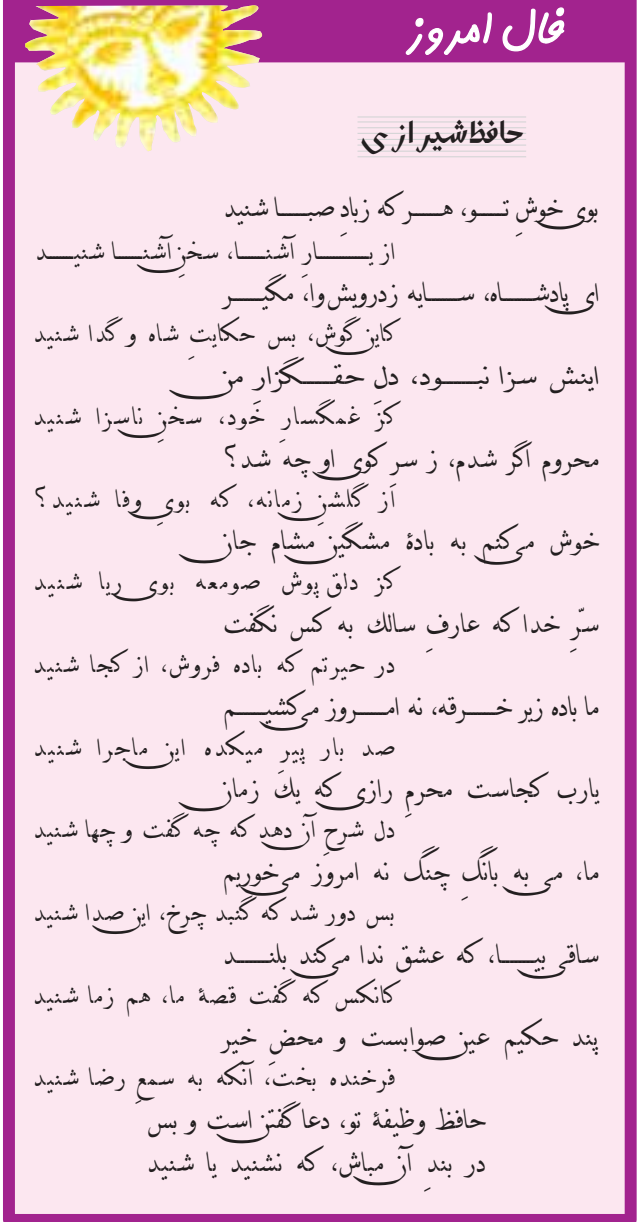 فال امروز
حافظ شیرازی
بوی خوشِ تو، هر که زبادِ صبا شنید
از یارِ آشنا، سخنِ آشنا شنید
ای پادشاه، سایه زدرویش وا، مگیر
کاین گوش، بس حکایتِ شاه و گدا شنید
اینش سزا نبود، دل حقگزارِ من
کز غمگسارِ خود، سخنِ ناسزا شنید
محروم اگر شدم، ز سر کوی او چه شد؟
از گلشنِ زمانه، که بوی وفا شنید؟
خوش می‌کنم به بادۀ مشگین مشام جان
کز دلق پوش صومعه بوی ریا شنید
سرّ خدا که عارفِ سالك به کس نگفت
در حیرتم که باده فروش، از کجا شنید
ما باده زیر خرقه، نه امروز می‌کشیم
صد بار پیرِ میکده این ماجرا شنید
یارب کجاست محرمِ رازی که یك زمان
دل شرحِ آن دهد که چه گفت و چها شنید
ما، می به بانگِ چنگ نه امروز می‌خوریم
بس دور شد که گنبد چرخ، این صدا شنید
ساقی بیا، که عشق ندا می‌کند بلند
کانکس که گفت قصۀ ما، هم زما شنید
پند حکیم عین صوابست و محضِ خیر
فرخنده بخت، آنکه به سمعِ رضا شنید
حافظ وظیفۀ تو، دعا گفتن است و بس
در بندِ آن مباش، که نشنید یا شنید